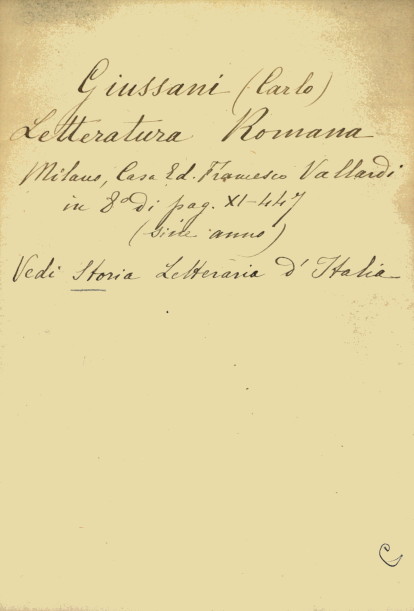 Giussani (Carlo)
Letteratura Romana
Milano, Casa Ed. Francesco Vallardi
in 8º di pag. XI-447
(sine anno)
Vedi Storia Letteraria d'Italia